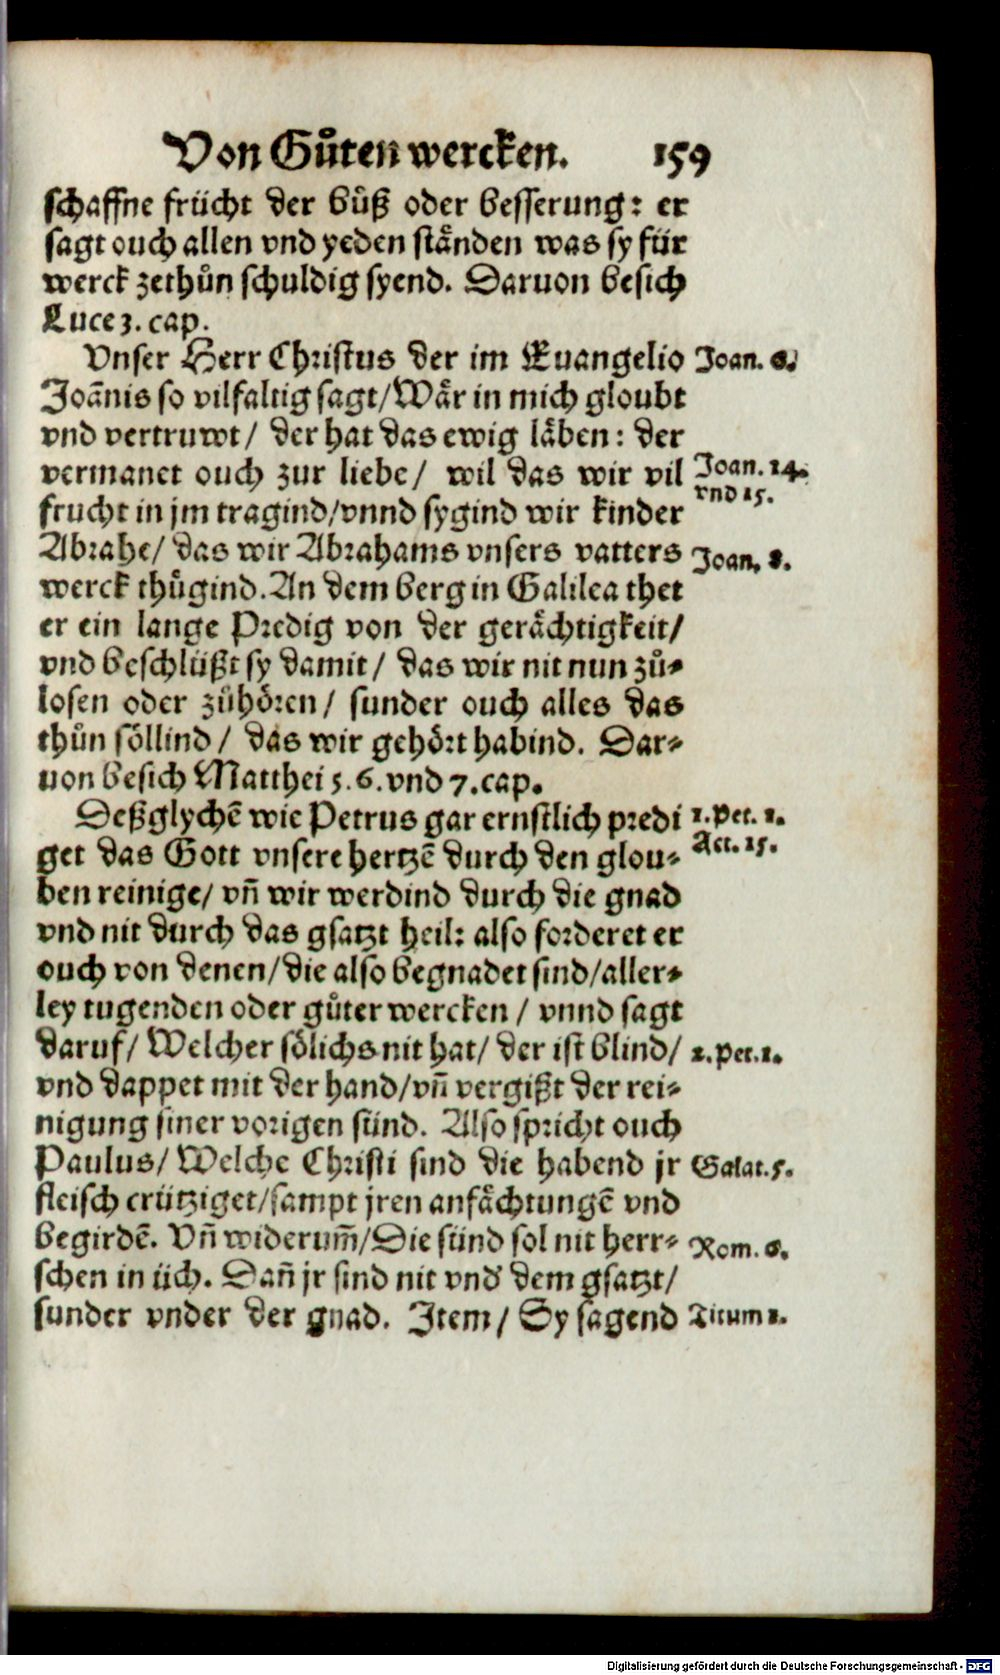 Von Gůten wercken. 159
schaffne frücht der bůß oder besserung: er
sagt ouch allen vnd yeden ständen was sy für
werck zethůn schuldig syend. Daruon besich
Luce 3. cap.
Vnser Herr Christus der im Euangelio Joan. 6.
Joānis so vilfaltig sagt/ Wär in mich gloubt
vnd vertruwt/ der hat das ewig läben: der
vermanet ouch zur liebe/ wil das wir vil Joan. 14.
vnd 15.
frucht in jm tragind/ vnnd sygind wir kinder
Abrahe/ das wir Abrahams vnsers vatters Joan. 8.
werck thůgind. An dem berg in Galilea thet
er ein lange Predig von der gerächtigkeit/
vnd beschlüßt sy damit/ das wir nit nun zů-
losen oder zůhören/ sunder ouch alles das
thůn söllind/ das wir gehört habind. Dar-
uon besich Matthei 5. 6. vnd 7. cap.
Deßglychē wie Petrus gar ernstlich predi 1. Pet. 1.
get das Gott vnsere hertzē durch den glou- Act. 15.
ben reinige/ vñ wir werdind durch die gnad
vnd nit durch das gsatzt heil: also forderet er
ouch von denen/ die also begnadet sind/ aller-
ley tugenden oder gůter wercken/ vnnd sagt
daruf/ Welcher sölichs nit hat/ der ist blind/ 2. Pet. 1.
vnd dappet mit der hand/ vñ vergißt der rei-
nigung siner vorigen sünd. Also spricht ouch
Paulus/ Welche Christi sind die habend jr Galat. 5.
fleisch crütziget/ sampt jren anfächtungē vnd
begirdē. Vñ widerum̃/ Die sünd sol nit herr- Rom. 6.
schen in üch. Dañ jr sind nit vnd' dem gsatzt/
sunder vnder der gnad. Item/ Sy sagend Titum 1.
Digitalisierung gefördert durch die Deutsche Forschungsgemeinschaft - DFG